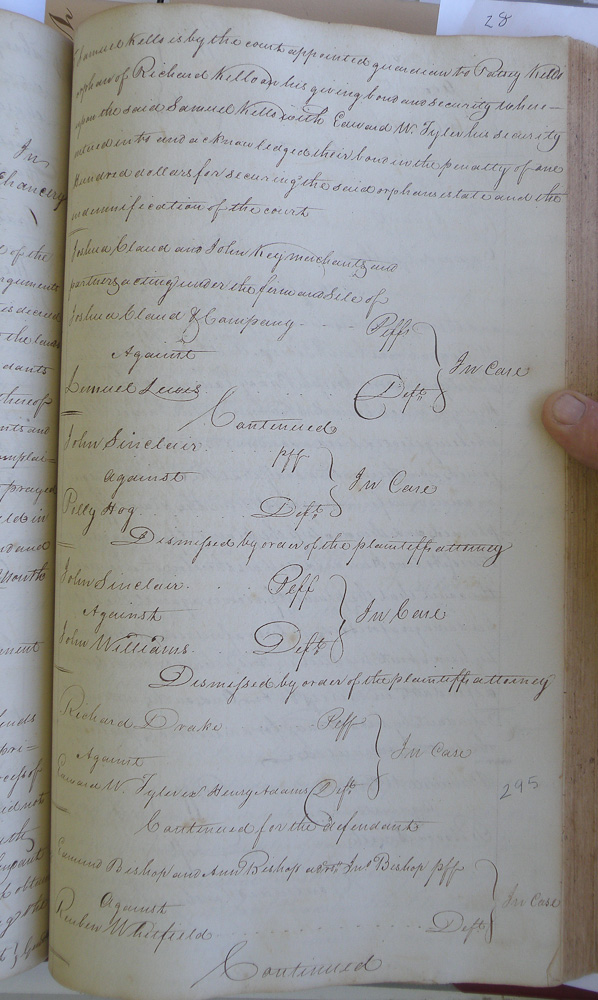 28
Samuel Kello is by the court appointed guardian to Patsey Kello
orphan of Richard Kello on his giving bond and security where-
upon the said Samuel Kello with Edward W. Tyler his security
entered into and acknowledged their bond in the penalty of one
Hundred dollars for securing the said orphans estate and the
indemnification of the court
Joshua Claud and John Key merchants and
partners acting under the firm and stile of
Joshua Claud & Company Peffs
Against In Case
Lemuel Lewis Deft.
Continued
John Sinclair pff
against In Case
Polly Hog Deft.
Dismissed by order of the plaintiffs attorney
John Sinclair Peff
Against In Case
John Williams Deft.
Dismissed by order of the plaintiffs attorney
Richard Drake Peff
Against In Case
Edward W. Tyler exr Henry Adams Deft.
295
Continued for the defendant
Edmund Bishop and Ann Bishop adors Jno Bishop pff
Against In Case
Reuben Whitfield Deft.
Continued
In
chancery
of the
arguments
is decreed
the land
dants
thereof
prayed